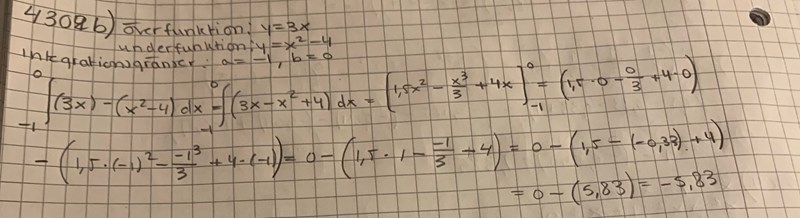 4308b) överfunktion: y=3x
underfunktion: y=x²-4
Integrationsgränser: a=-1, b=0
∫₋₁⁰ (3x)-(x²-4) dx = ∫₋₁⁰ (3x-x²+4) dx = [1,5x² - x³/3 + 4x]₋₁⁰ = (1,5·0 - 0/3 + 4·0)
- (1,5·(-1)² - -1³/3 + 4·(-1)) = 0 - (1,5·1 - -1/3 + 4) = 0 - (1,5 - (-0,33) + 4)
= 0 - (5,83) = -5,83